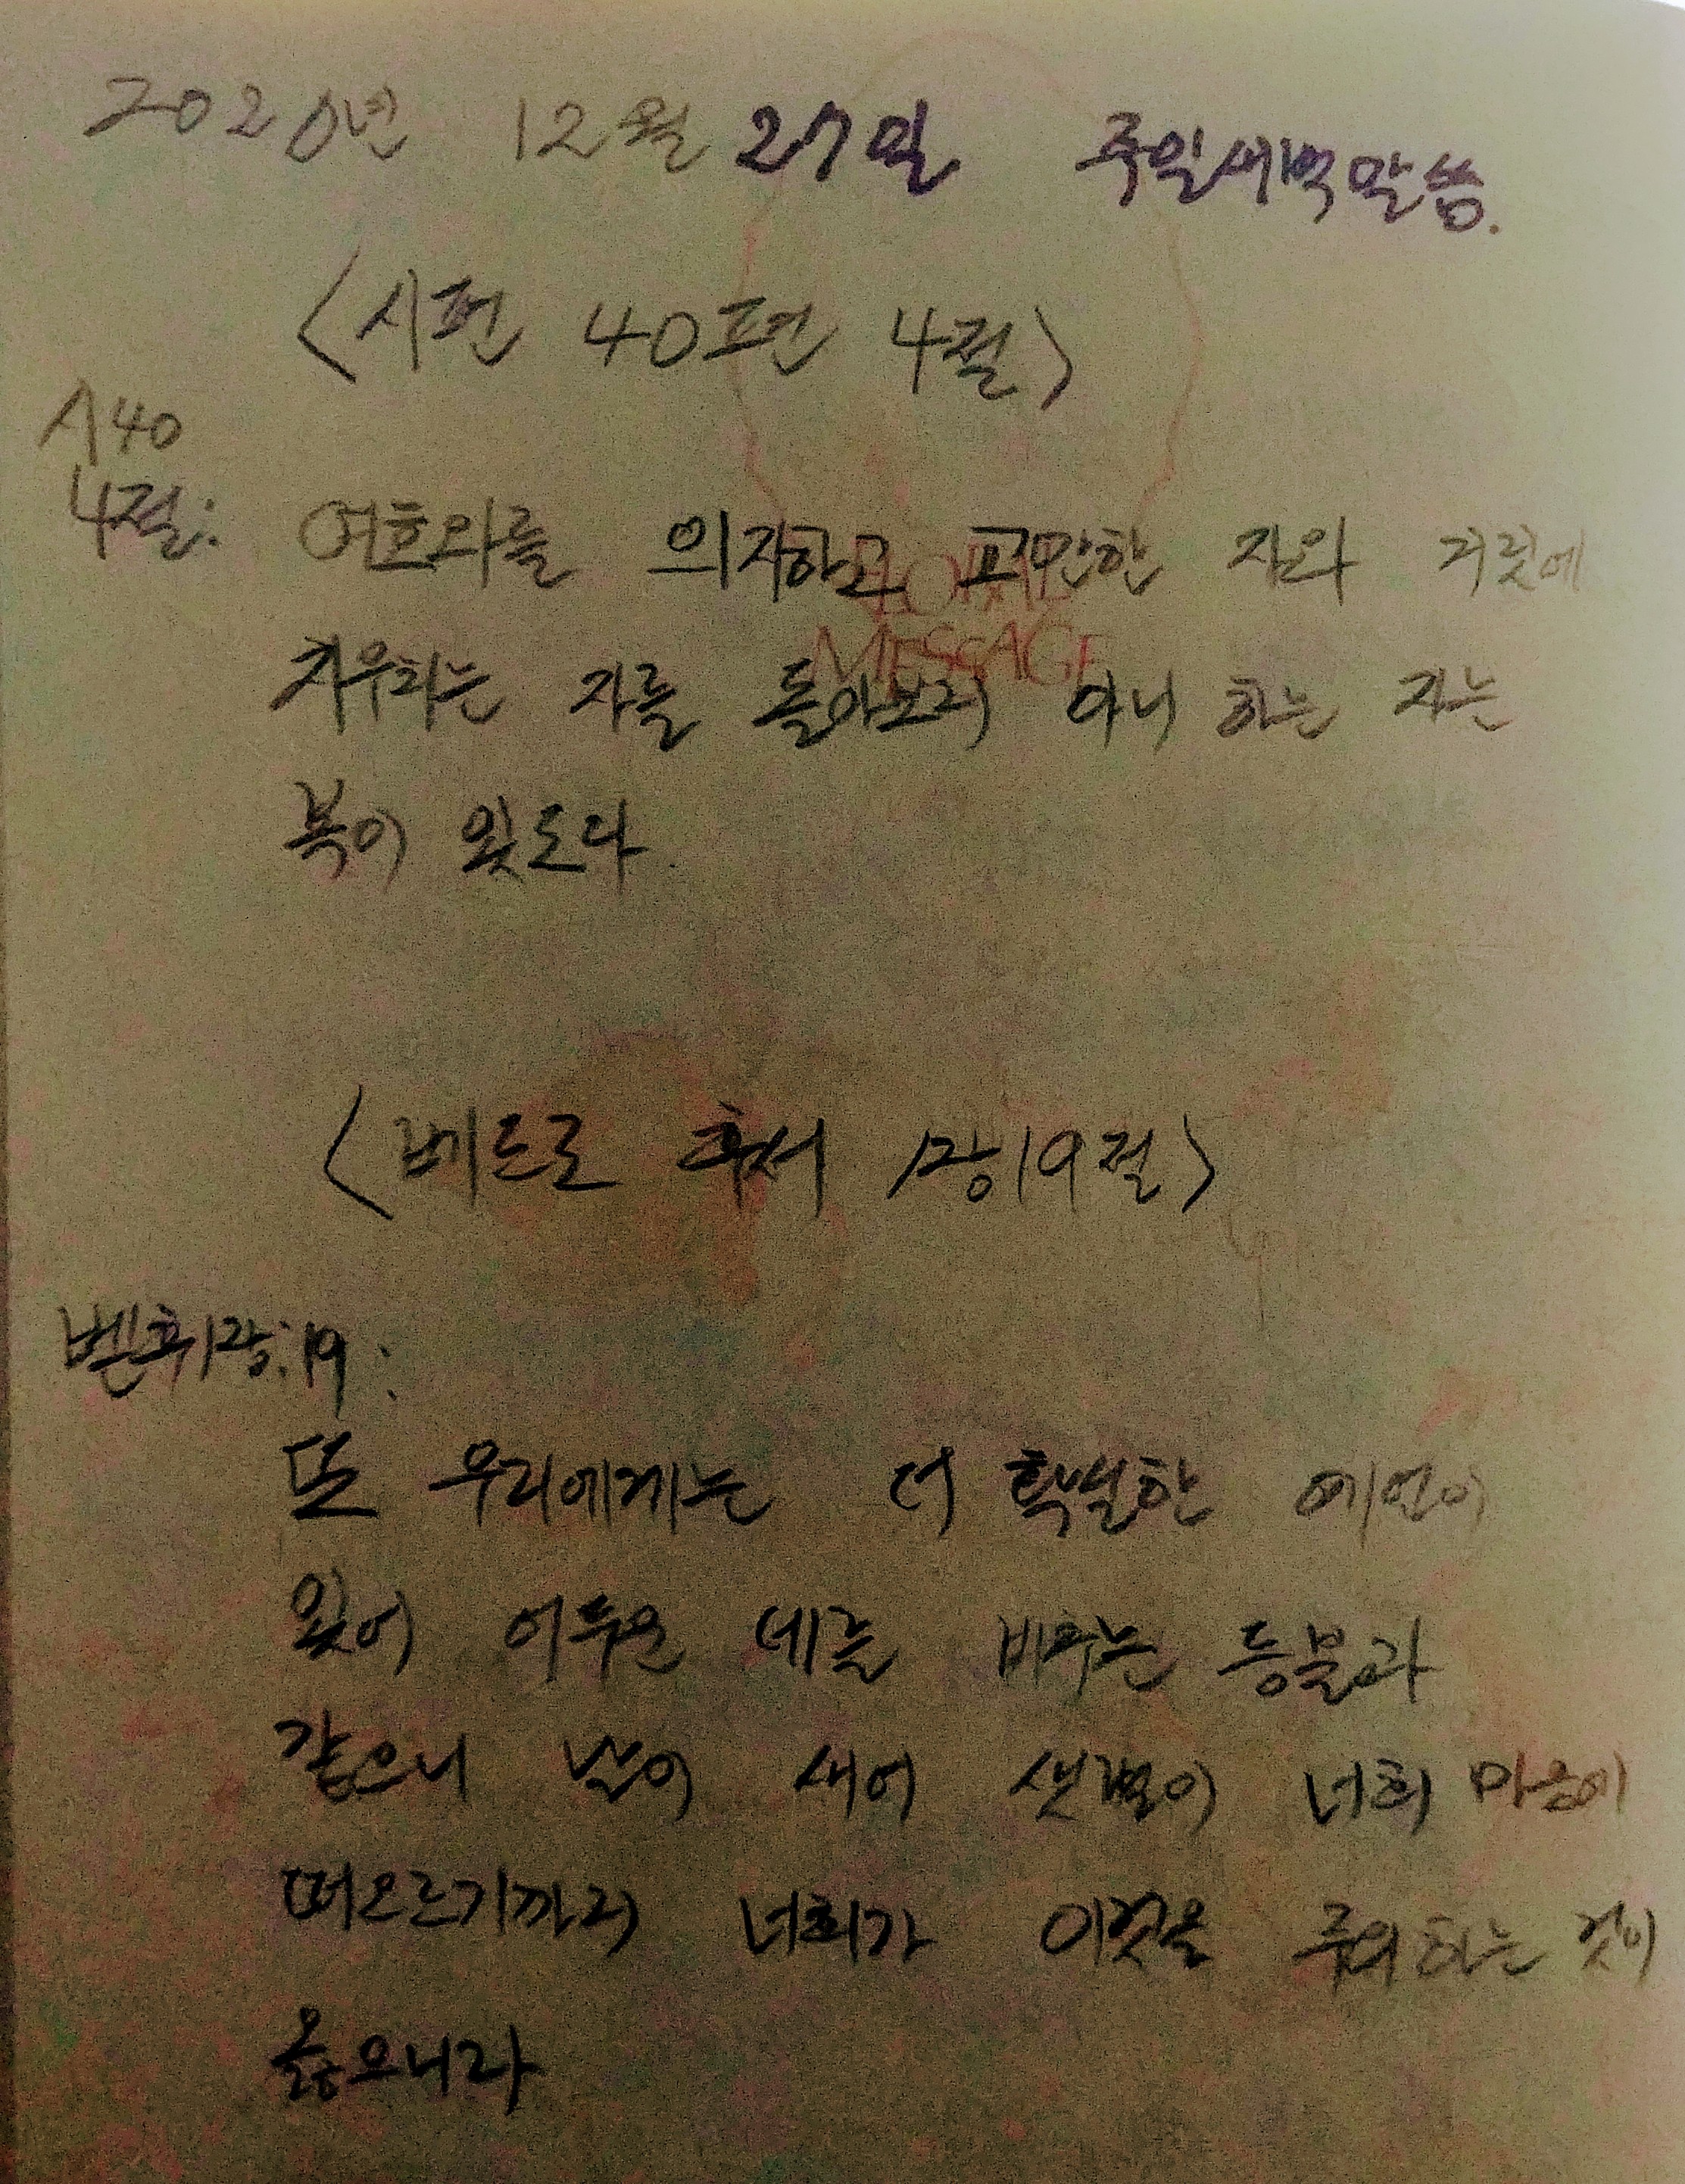 2020년 12월 27일 주일새벽말씀.
<시편 40편 4절>
시40
4절: 여호와를 의지하고 교만한 자와 거짓에
치우치는 자를 돌아보지 아니 하는 자는
복이 있도다
MESSAGE
<베드로 후서 1장19절>
벧후1장:19:
또 우리에게는 더 확실한 예언이
있어 어두운 데를 비추는 등불과
같으니 날이 새어 샛별이 너희 마음에
떠오르기까지 너희가 이것을 주의하는 것이
옳으니라